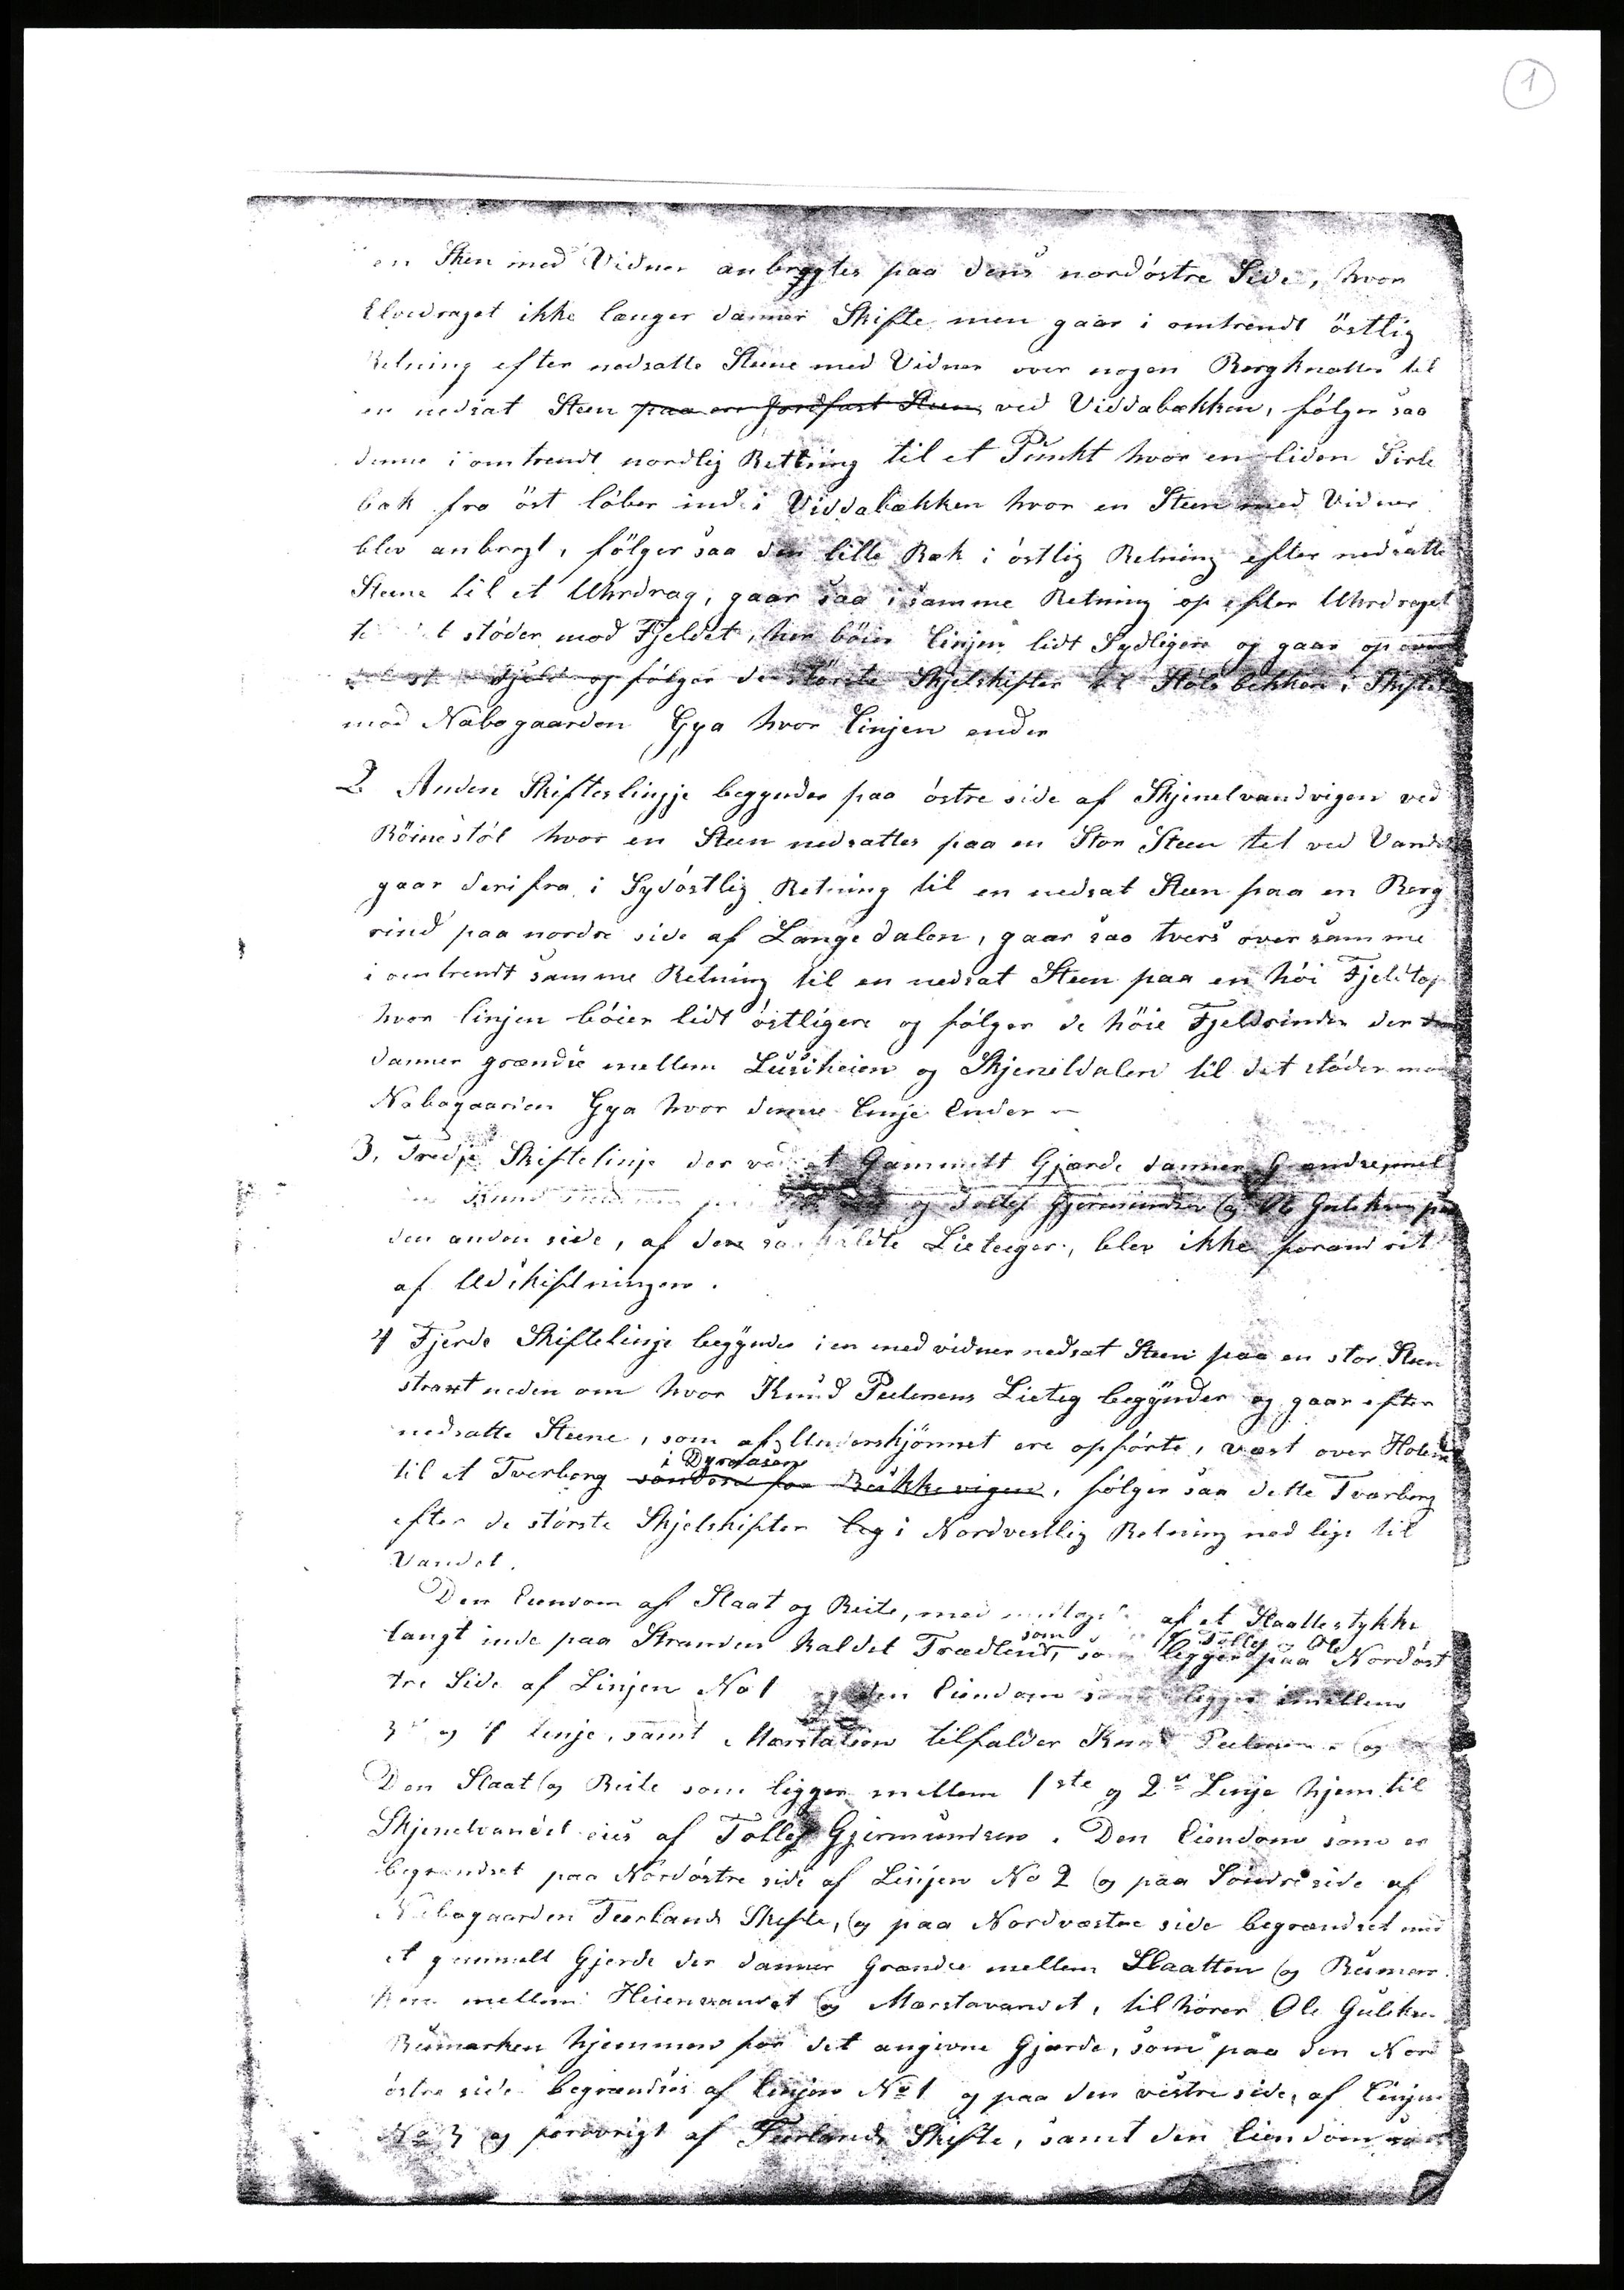 1
en Sten med Vidner anbragtes paa dens nordöstre Side, hvor
Elvedraget ikke længer danner Skifte men gaar i omtrendt östlig
Retning efter nedsatte Steene med Vidner over nogen Bergknatter til
en nedsat Steen paa en Jordfast Steen ved Viddabækken, fölger saa
denne i omtrendt nordlig Rettning til et Punkt hvor en liden
bæk fra öst löber ind i Viddabækken hvor en Steen med Vidner
blev anbragt, fölger saa den lille Bæk i östlig Retning efter nedsatte
Steene til et Uhrdrag, gaar saa i samme Retning op efter Uhrdraget
stöder mod Fjeldet, her böier Linjen lidt Sydligere og gaar op
Fjeld og fölger de störste Skjelskifter til Stöls bekken i Skiftet
mod Nabogaarden Gya hvor Linjen ender
2 Anden Skifteslinje begynder paa östre side af Skjenelvandvigen ved
Röinestöl hvor en Steen nedsattes paa en Stor Steen tet ved Vandet
gaar derifra i Sydöstlig Retning til en nedsat Steen paa en Berg
rind paa nordre side af Langedalen, gaar saa tvers over samme
i omtrendt samme Retning til en nedsat Steen paa en höi Fjeldtop
hvor linjen böier lidt östligere og fölger de höie Fjeldrinder der
danner grændse mellem Lusiheien og Skjeneldalen til det stöder mod
Nabogaarden Gya hvor denne Linje Ender –
3. Tredje Skiftelinje der ved et Gammelt Gjærde danner Grændse mel
og Tollef Gjermundsen og Ole Guleksen paa
den anden side, af den saakaldte Lieteiger, blev ikke forandret
af Udskiftningen.
4 Fjerde Skiftelinje begynder i en med vidner nedsat Steen paa en stor Steen
straxt neden om hvor Knud Peedersens Lieteg begynder og gaar efter
nedsatte Steene, som af Underskjönnet ere opförte, væst over
i Dyrdaasen
til et Tverberg söndere for Bukkevigen, fölger saa dette Tværberg
efter de störste Skjelskifter leg i Nordvestlig Retning ned lige til
Vandet.
Den Eiendom af Slaat og Beite, med undtagelse af et Slaattestykke
som Tollef Ole
langt inde paa Stranden kaldet Trædlend, som ligger paa Nordöst
tre Side af Linjen No 1 og den Eiendom som ligger imellem
3 og 4 linje, samt tilfalder Knud og
Den Slaat og Beite som ligger mellem 1ste og 2den Linje hjem til
Skjenelvandet eies af Tollef Gjermundsen. Den Eiendom som er
begrændset paa Nordöstre side af Linjen No 2 og paa Söndre side af
Nabogaarden Teerlands Skifte, og paa Nordvæstre side begrændset med
et gammelt Gjerde der danner Grændse mellem Slaatten og Beimar
ken mellem Heienvandet og Marstavandet, tilhörer Ole Guleksen
Beimarken hjemmen for det angivne Gjærde, som paa den Nord
östre side begrændses af linjen No 1 og paa den vestre side, af Linjen
No 3 og forövrigt af Teerlands Skifte, samt den Eiendom som